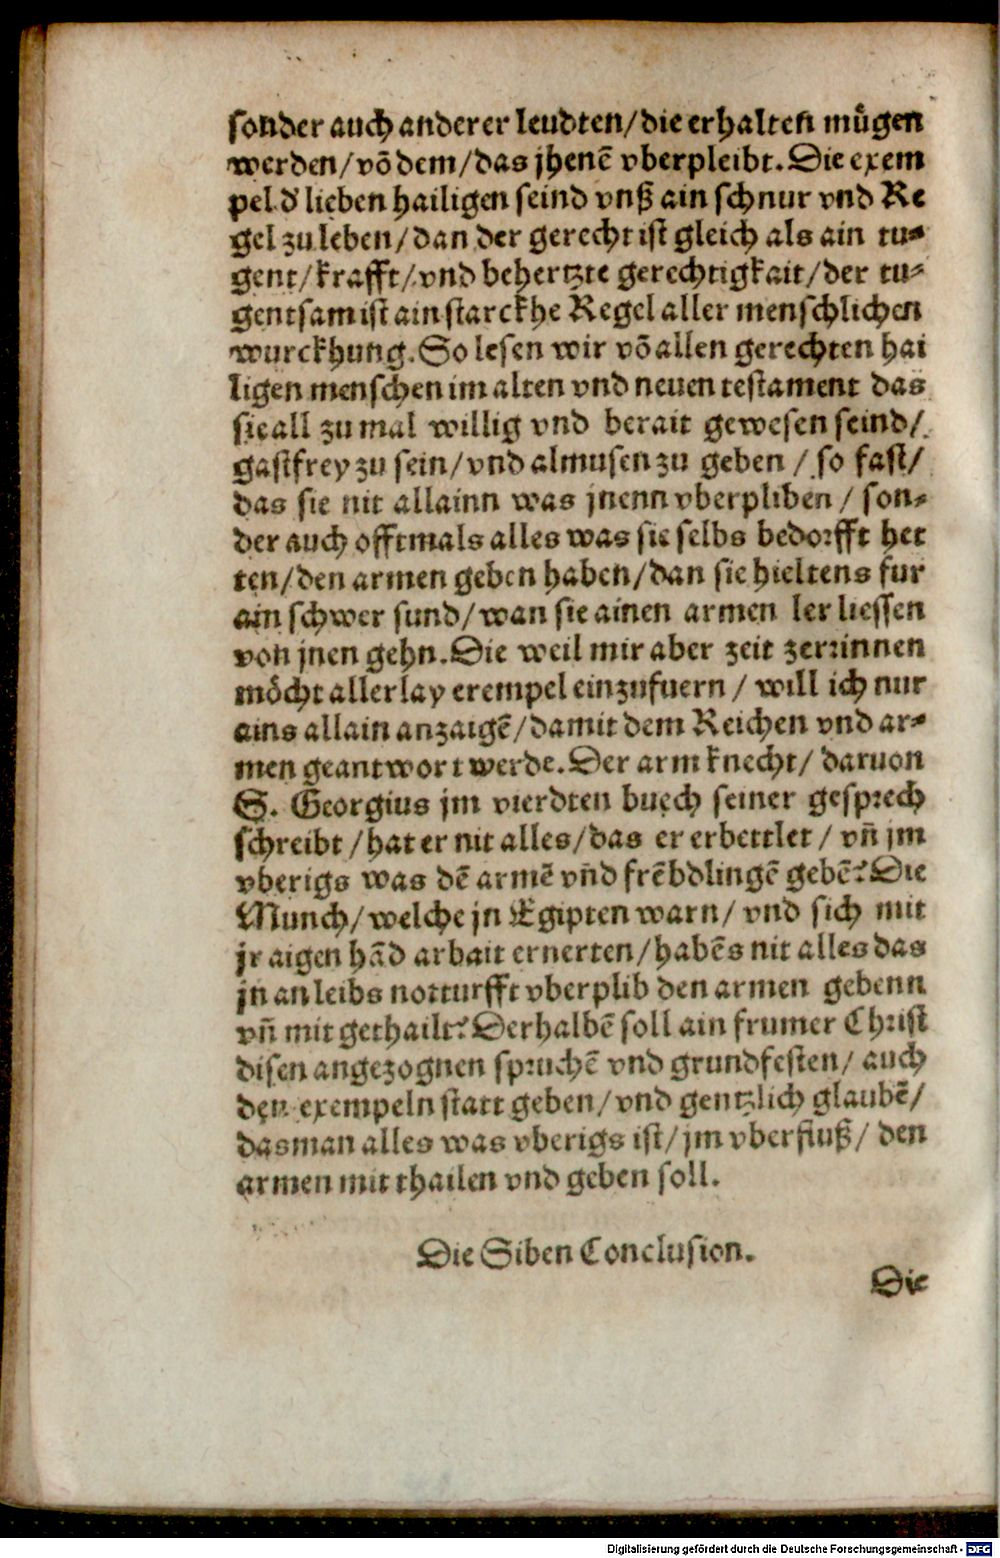 sonder auch anderer leudten/die erhalten mügen
werden/võ dem/das jhenẽ vberpleibt. Die exem
pel d' lieben hailigen seind vnß ain schnur vnd Re
gel zu leben/dan der gerecht ist gleich als ain tu⸗
gent/krafft/vnd behertzte gerechtigkait/der tu⸗
gentsam ist ain starckhe Regel aller menschlichen
wurckhung. So lesen wir võ allen gerechten hai
ligen menschen im alten vnd neuen testament das
sie all zu mal willig vnd berait gewesen seind/
gastfrey zu sein/vnd almusen zu geben / so fast/
das sie nit allainn was jnenn vberpliben / son⸗
der auch offtmals alles was sie selbs bedorfft het
ten/den armen geben haben/dan sie hieltens fur
ain schwer sund/wan sie ainen armen ler liessen
von jnen gehn. Die weil mir aber zeit zerrinnen
möcht allerlay exempel einzufuern / will ich nur
ains allain anzaigẽ/damit dem Reichen vnd ar⸗
men geantwort werde. Der arm knecht/ daruon
S. Georgius jm vierdten buech seiner gesprech
schreibt/hat er nit alles/das er erbettlet / vñ jm
vberigs was dẽ armẽ vñd frẽbdlingẽ gebẽ? Die
Munch/welche jn Egipten warn/ vnd sich mit
jr aigen hãd arbait ernerten/habẽs nit alles das
jn an leibs notturfft vberplib den armen gebenn
vñ mit gethailt? Derhalbẽ soll ain frumer Christ
disen angezognen spruchẽ vnd grundfesten/ auch
den exempeln statt geben/vnd gentzlich glaubẽ/
das man alles was vberigs ist/jm vberfluß/ den
armen mit thailen vnd geben soll.
Die Siben Conclusion.
Die
Digitalisierung gefördert durch die Deutsche Forschungsgemeinschaft - DFG